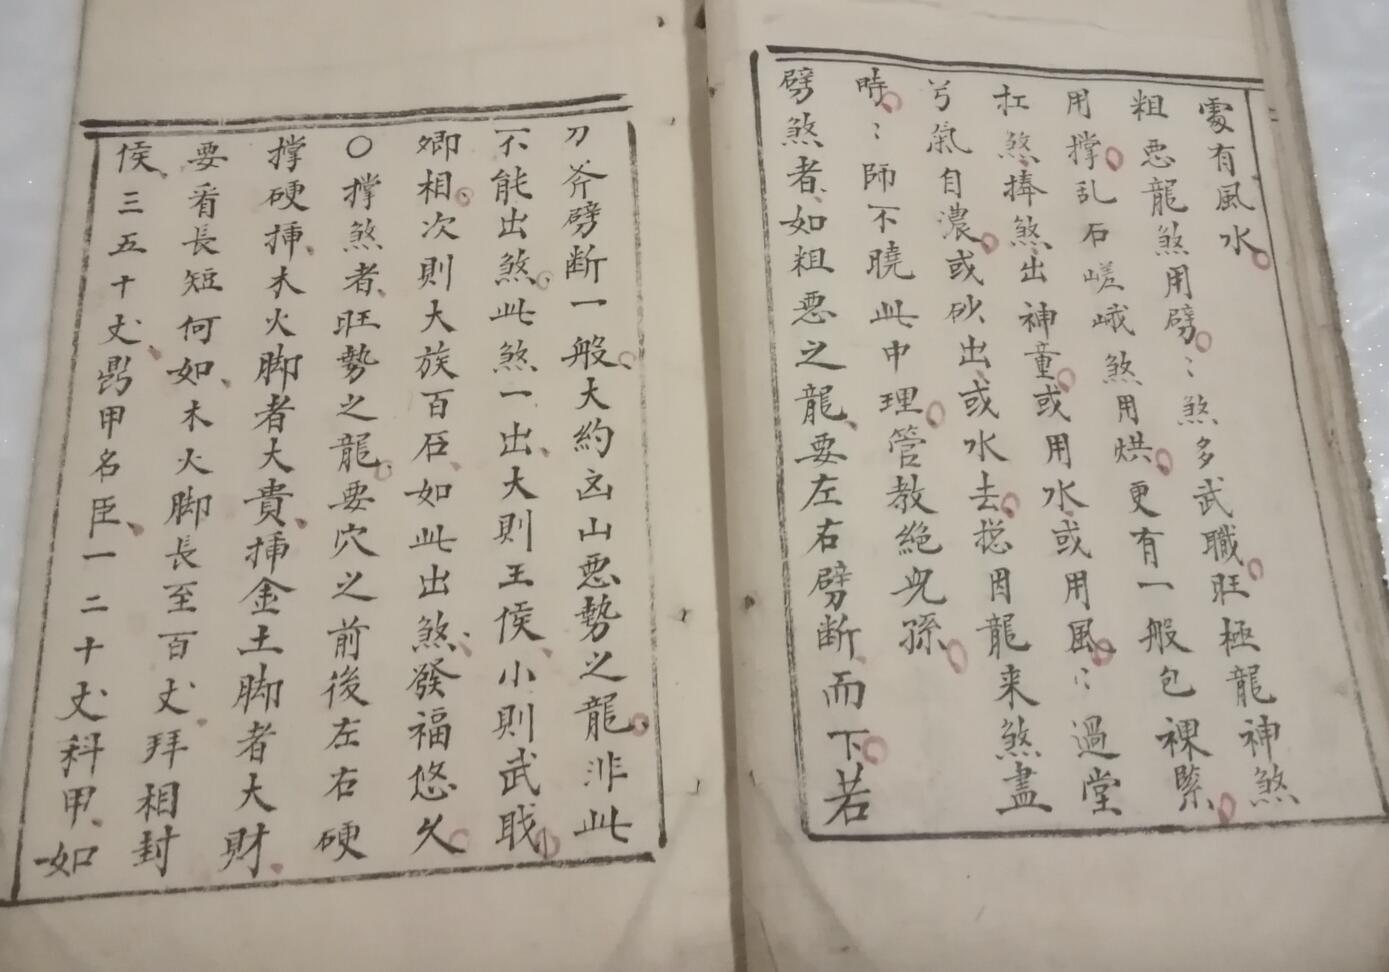 處有風水
粗惡龍煞用劈〻煞多武職旺極龍神煞
用撑乱石嵯峨煞用烘更有一般包裸緊
扛煞捧煞出神童或用水或用風〻過堂
兮氣自濃或砂出或水去揔因龍来煞盡
時〻師不曉此中理管教絶児孫
劈煞者如粗惡之龍要左右劈断而下若
刀斧劈断一般大約凶山惡勢之龍非此
不能出煞此煞一出大則王侯小則武戝
卿相次則大族百臣如此出煞發福悠久
〇撑煞者旺勢之龍要穴之前後左右硬
撑硬揷木火脚者大貴揷金土脚者大財
要看長短何如木火脚長至百丈拜相封
侯三五十丈鼎甲名臣一二十丈科甲如